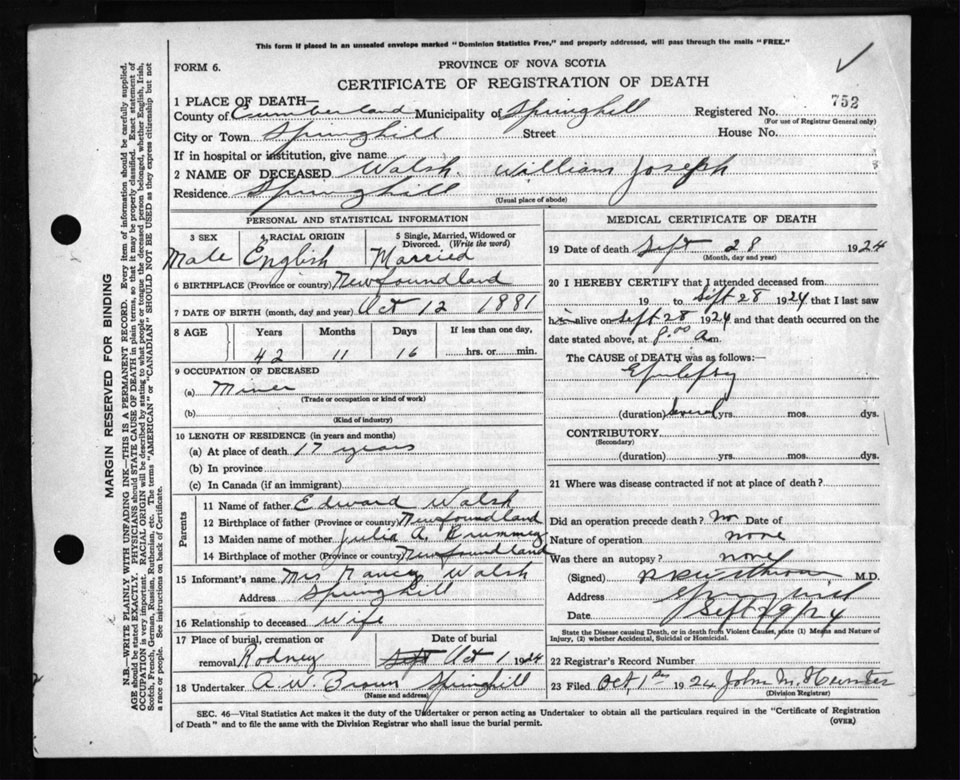 This form if placed in an unsealed envelope marked "Dominion Statistics Free," and properly addressed, will pass through the mails "FREE."
FORM 6.
PROVINCE OF NOVA SCOTIA
CERTIFICATE OF REGISTRATION OF DEATH
1 PLACE OF DEATH—
County of Cumberland Municipality of Springhill Registered No. 752
(For use of Registrar General only)
City or Town Springhill Street House No.
If in hospital or institution, give name
2 NAME OF DECEASED Walsh William Joseph
Residence Springhill
(Usual place of abode)
PERSONAL AND STATISTICAL INFORMATION
3 SEX Male
4 RACIAL ORIGIN English
5 Single, Married, Widowed or Divorced. (Write the word) Married
6 BIRTHPLACE (Province or country) Newfoundland
7 DATE OF BIRTH (month, day and year) Oct 12 1881
8 AGE Years Months Days If less than one day,
42 11 16 hrs. or min.
9 OCCUPATION OF DECEASED
(a) Miner
(Trade or occupation or kind of work)
(b)
(Kind of industry)
10 LENGTH OF RESIDENCE (in years and months)
(a) At place of death 17 years
(b) In province
(c) In Canada (if an immigrant)
Parents
11 Name of father Edward Walsh
12 Birthplace of father (Province or country) Newfoundland
13 Maiden name of mother Julia A.
14 Birthplace of mother (Province or country) Newfoundland
15 Informant's name Mrs Nancy Walsh
Address Springhill
16 Relationship to deceased Wife
17 Place of burial, cremation or removal Rodney
Date of burial Sept Oct 1 1924
18 Undertaker A. W. Brown Springhill
(Name and address)
MEDICAL CERTIFICATE OF DEATH
19 Date of death Sept 28 1924
(Month, day and year)
20 I HEREBY CERTIFY that I attended deceased from
19 to Sept 28 1924 that I last saw
him alive on Sept 28 1924 and that death occurred on the
date stated above, at 8.00 a.m.
The CAUSE of DEATH was as follows:—
Epilepsy
(duration) Several yrs. mos. dys.
CONTRIBUTORY
(Secondary)
(duration) yrs. mos. dys.
21 Where was disease contracted if not at place of death?
Did an operation precede death? No Date of
Nature of operation none
Was there an autopsy? none
(Signed) M.D.
Address Springhill
Date Sept 29/24
State the Disease causing Death, or in death from Violent Causes, state (1) Means and Nature of Injury, (2) whether Accidental, Suicidal or Homicidal.
22 Registrar's Record Number
23 Filed Oct, 1st 1924 John M. Hunter
(Division Registrar)
SEC. 46—Vital Statistics Act makes it the duty of the Undertaker or person acting as Undertaker to obtain all the particulars required in the "Certificate of Registration
of Death" and to file the same with the Division Registrar who shall issue the burial permit.
(OVER)
MARGIN RESERVED FOR BINDING
N.B.—WRITE PLAINLY WITH UNFADING INK—THIS IS A PERMANENT RECORD. Every item of information should be carefully supplied.
AGE should be stated EXACTLY. PHYSICIANS should STATE CAUSE OF DEATH in plain terms, so that it may be properly classified. Exact statement of
OCCUPATION is very important. RACIAL ORIGIN will be described by stating to what people or tongue the deceased person belonged, whether English, Irish,
Scotch, French, German, Russian, Ruthenian, etc. The terms "AMERICAN" or "CANADIAN" SHOULD NOT BE USED as they express citizenship but not
a race or people. See instructions on back of Certificate.